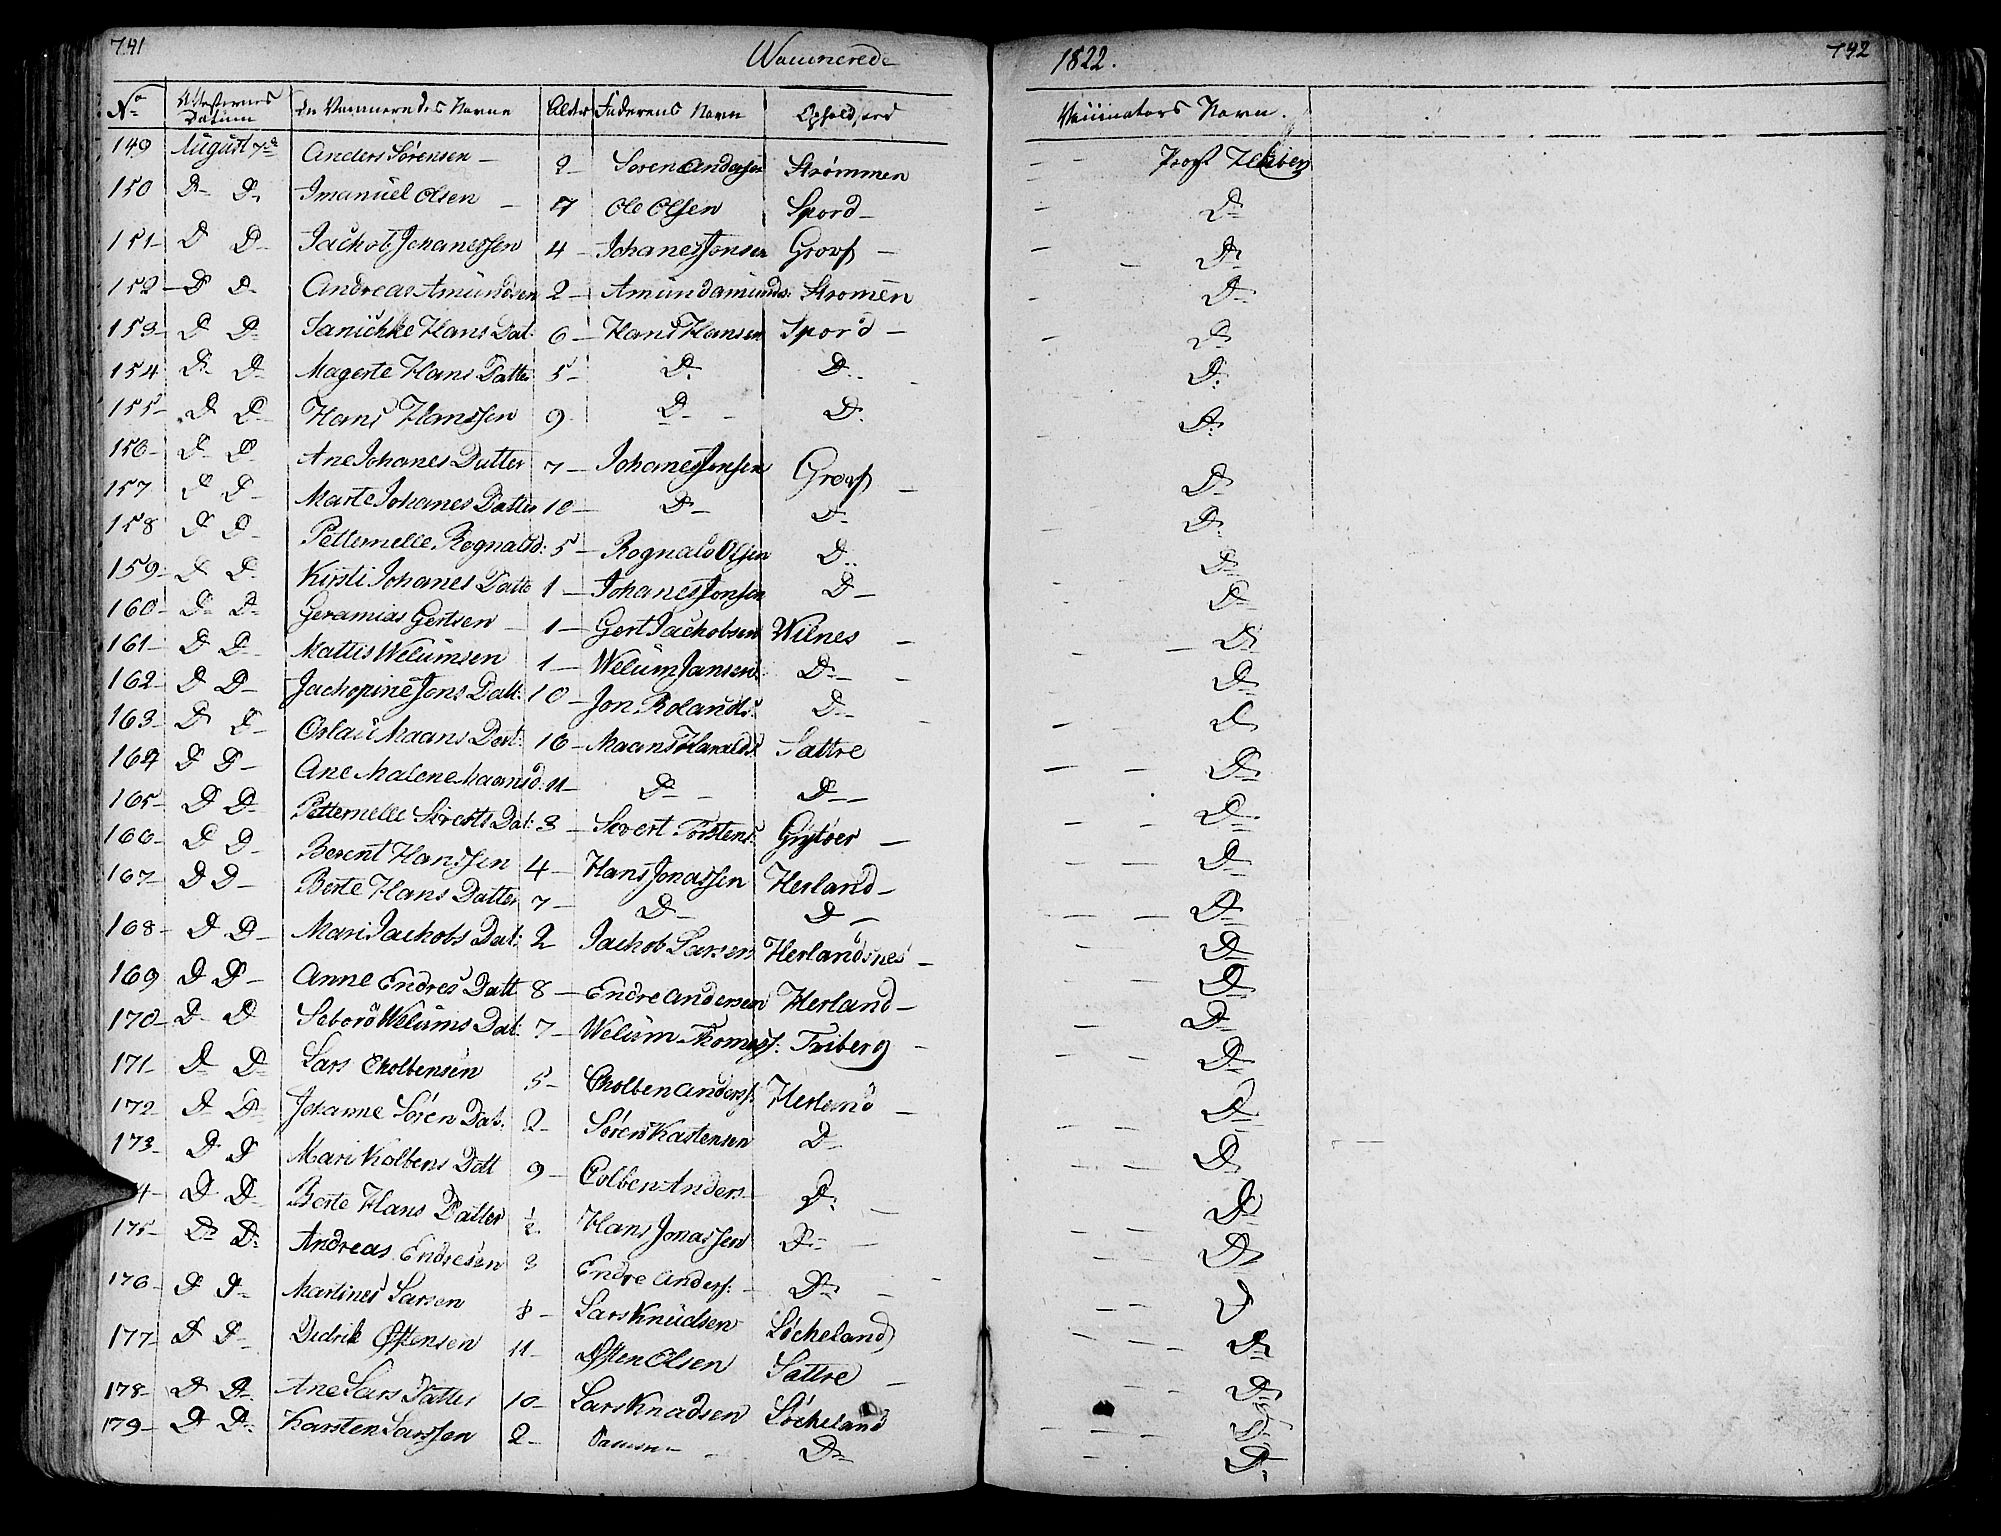 741
Waccinerede
1822.
742
No Attesternes Datum de Vaccineredes Navne Alder Faderens Navn Opholdsted Vaccinators Navn.
149 August 7de Anders Sørensen - 2 Soren Andersen Strømmen - - Profst
150 D- D. Imanuel Olsen - 7 Ole Olsen Spord - - D-
151 - D D- Jachob Johanessen 4 - Johanes Jonsen Grovf - - - D-
152 - D D- Andreas Amundsen 2 - Amund amunds: Stromen - D-
153 - D D- Hans Dat: 6 - Hans Hansen Spord - - D-
154 D- D- Magerte Hans Datter 5 - D- D.. - D-
155 - D D- Hans Hanssen 9 D- - D. D-
156 - D- D- Ane Johanes Datter 7 - Johanes Jonsen Grovf - D-
157 D D- Marte Johanes Datter 10 - D- D- D-
158 D D- Petternelle Rognalsd: 5 - Rognald Olsen D.. D-
159 - D D- Kirsti Johanes Datte 1 - Johanes Jonsen D - D-
160 - D- D- Geramias Gertsen - 1 - Gert Jachobsen Wilnes - - D-
161 - D D- Mattis Welumsen 1 - Welum Jansen D- - D-
162 - D D- Jachopine Jons Datt: 10 - Jon Rolands: D- - D
163 - D D- Oslau Maans Dat: 16 - Maans Haralds: Sattre - - D-
164 D D - Ane Malene Maansd: 11 - D- - D - D-
165 - D D- Petternelle Siverts Dat: 3 - Sivert Torstens: Grytøer - - - D-
166 - D D- Berent Hanssen 4 - Hans Jonassen Herland - - - D-
167 - D D - Berte Hans Datter 7 - D- D - D-
168 - D D - Mari Jachobs Dat: 2 Jachob Larsen Herlandsnes - D-
169 D D - Anne Endres Datt 8 - Endre Andersen Herland - - D-
170 - D- D Welums Dat: 7 - Welum Thomess: Triberg - - - D-
171 - D- D- Lars Cholbensen 5 - Cholben Anderss: Herland - - - D-
172 - D- D- Johanne Søren Dat: 2 - Søren Kastensen D- - - D-
173 - D- D Mari Kolbens Datt 9 - Colben Anders - D- - - - D-
4 - D D- Berte Hans Datter ½ Hans Jonassen D- - - - D-
175 - D- D- Andreas Endresen 2 Endre Anders: - D- - - - D
176 - D D- Martines Larsen 8 - Lars Knudsen Løcheland - - - D-
177 - D D - Didrik Østensen 11 - Østen Olsen Sattre - - - D-
178 - D D- Ane Lars Datter 10 - Lars Knudsen Løcheland - - - D-
179 - D D- Karsten Larssen 2 - Samme - D- D-